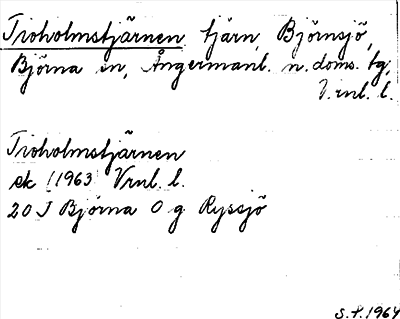 Troholmstjärnen tjärn, Björnsjö,
Björna sn, Ångermanl. n. doms. tg,
V.rnl. l.
Troholmstjärnen
ek (1963 Vrnl. l.
20 J Björna O g Ryssjö
S.P. 1964